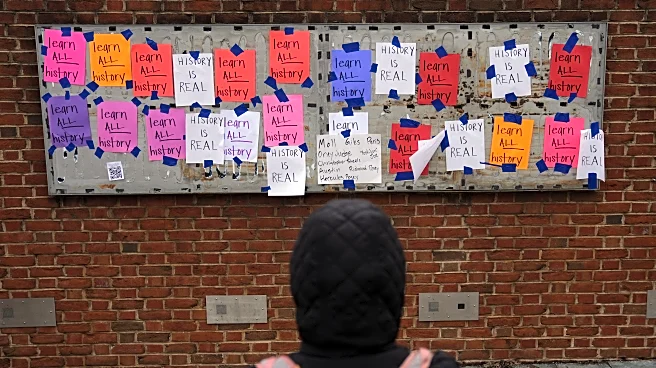 learn
ALL
history
learn
ALL
history
learn
ALL
history
HISTORY
IS
REAL
learn
ALL
history
learn
ALL
history
learn
ALL
history
HISTORY
IS
REAL
learn
ALL
history
HISTORY
IS
REAL
learn
ALL
history
learn
ALL
history
learn
ALL
history
learn
ALL
history
HISTORY
IS
REAL
ALL
history
learn
ALL
history
HISTORY
IS
REAL
learn
Moll Giles Paris
Oney Judge
Austin Richmond
Hercules Posey
learn
ALL
history
HISTORY
IS
REAL
learn
ALL
history
learn
ALL
history
IS